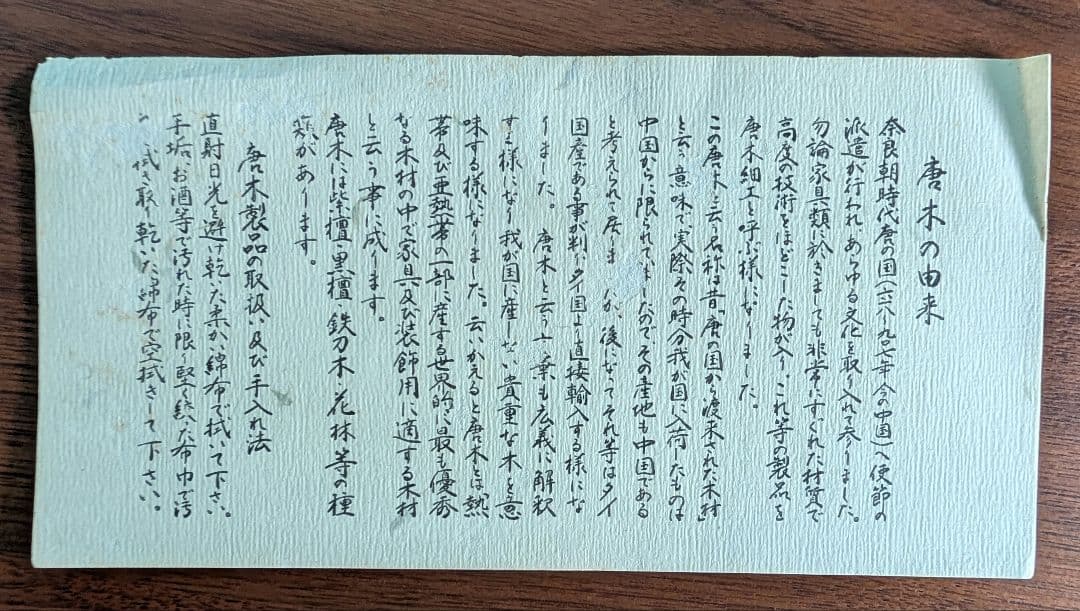 唐木の由来
奈良朝時代唐の国(六一八〜九〇七年今の中国)へ使節の
派遣が行われ、あらゆる文化を取り入れて参りました。
勿論家具類に於きましても非常にすぐれた材質で
高度の技術をほどこした物が入り、これ等の製品を
唐木細工と呼ぶ様になりました。
この唐木と云う名称は昔「唐の国から渡来された木材」
と云う意味で、実際その時分我が国に入荷したものは
中国からに限られていましたのでその産地も中国である
と考えられて居りま が、後になってそれ等はタイ
国産である事が判りタイ国より直接輸入する様にな
りました。 唐木と云う 葉も広義に解釈
する様になり我が国に産しない貴重な木を意
味する様になりました。云いかえると唐木とは「熱
帯及び亜熱帯の一部に産する世界的に最も優秀
なる木材の中で家具及び装飾用に適する木材
と云う事に成ります。
唐木には紫檀・黒檀・鉄刀木・花林等の種
類があります。
唐木製品の取扱い及び手入れ法
直射日光を避け乾いた柔かい綿布で拭いて下さい。
手垢、お酒等で汚れた時に限り堅く絞った布巾で汚
れを拭き取り乾いた綿布で空拭きして下さい。